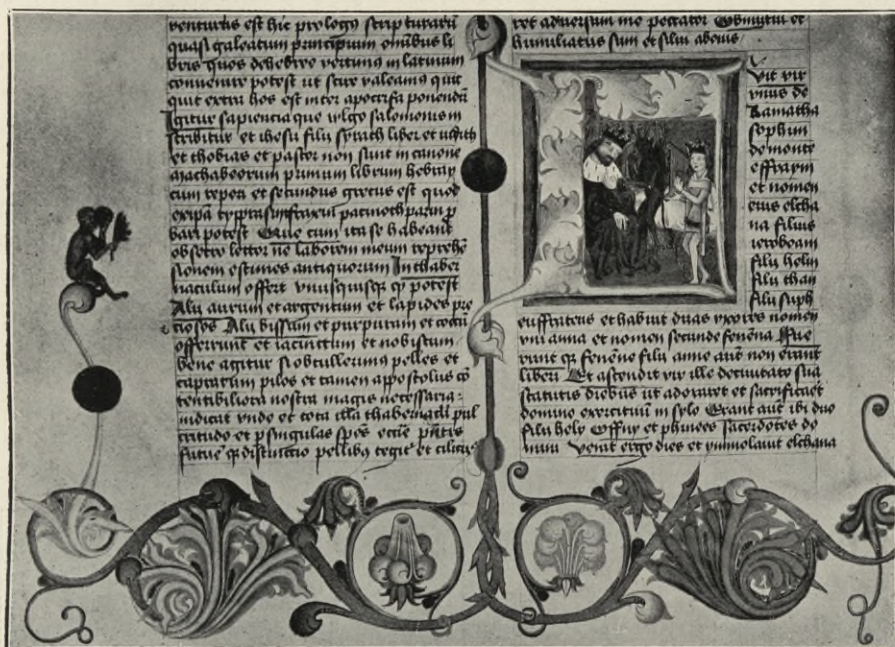 venturus est hic prologus scripturarū
quasi galeatum principium omībus li
bris quos de hebreo vertimus in latinum
convenire potest ut scire valeamus quit
quit extra hos est inter apocrifa ponendū
Igitur sapiencia que vulgo salomonis in
scribitur et ihesu filii syrach liber et iudith
et thobias et pastor non sunt in canone
machabeorum primum librum hebray
cum reperi et secundus grecus est quod
ex ipa
bari potest Que cum ita se habeant
obsecro lector ne laborem meum reprehē
sionem estimes antiquorum In thaber
naculum offert unusquisque qd potest
Alii aurum et argentum et lapides pre
ciosos Alii bissum et purpuram et coccū
offerunt et iacinctum et nobiscum
bene agitur si obtullerimus pelles et
caprarum pilos et tamen appostolus cō
tentibiliora nostra magis necessaria
iudicat unde et tota illa thabernacli pul
critudo et p singulas spēs ecclie pntis
future q distinctio pellibus tegit et ciliciis
ret adversum me peccator Obmutui et
humiliatus sum et silui a bonis
Fuit vir
unus de
Ramatha
sophim
de monte
effraym
et nomen
eius elcha
na filius
ieroboam
filii heliu
filii thau
filii suph
euffrateus et habuit duas uxores nomen
uni anna et nomen secunde fenēna Fue
runt q fenēne filii anne autē non erant
liberi Et ascendit vir ille de civitate sua
statutis diebus ut adoraret et sacrificaret
domino exercituum in sylo Erant autē ibi duo
filii hely Offny et phinees sacerdotes do
mini Venit ergo dies et ymmolavit elchana